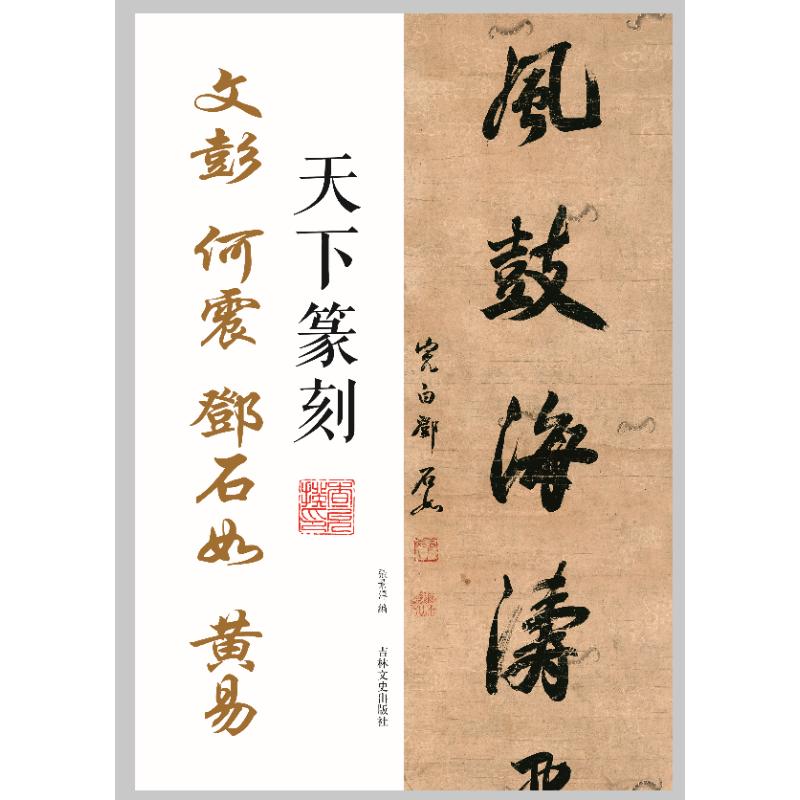 風鼓海濤
完白鄧石如
天下篆刻
吉林文史出版社
文彭 何震 鄧石如 黄易